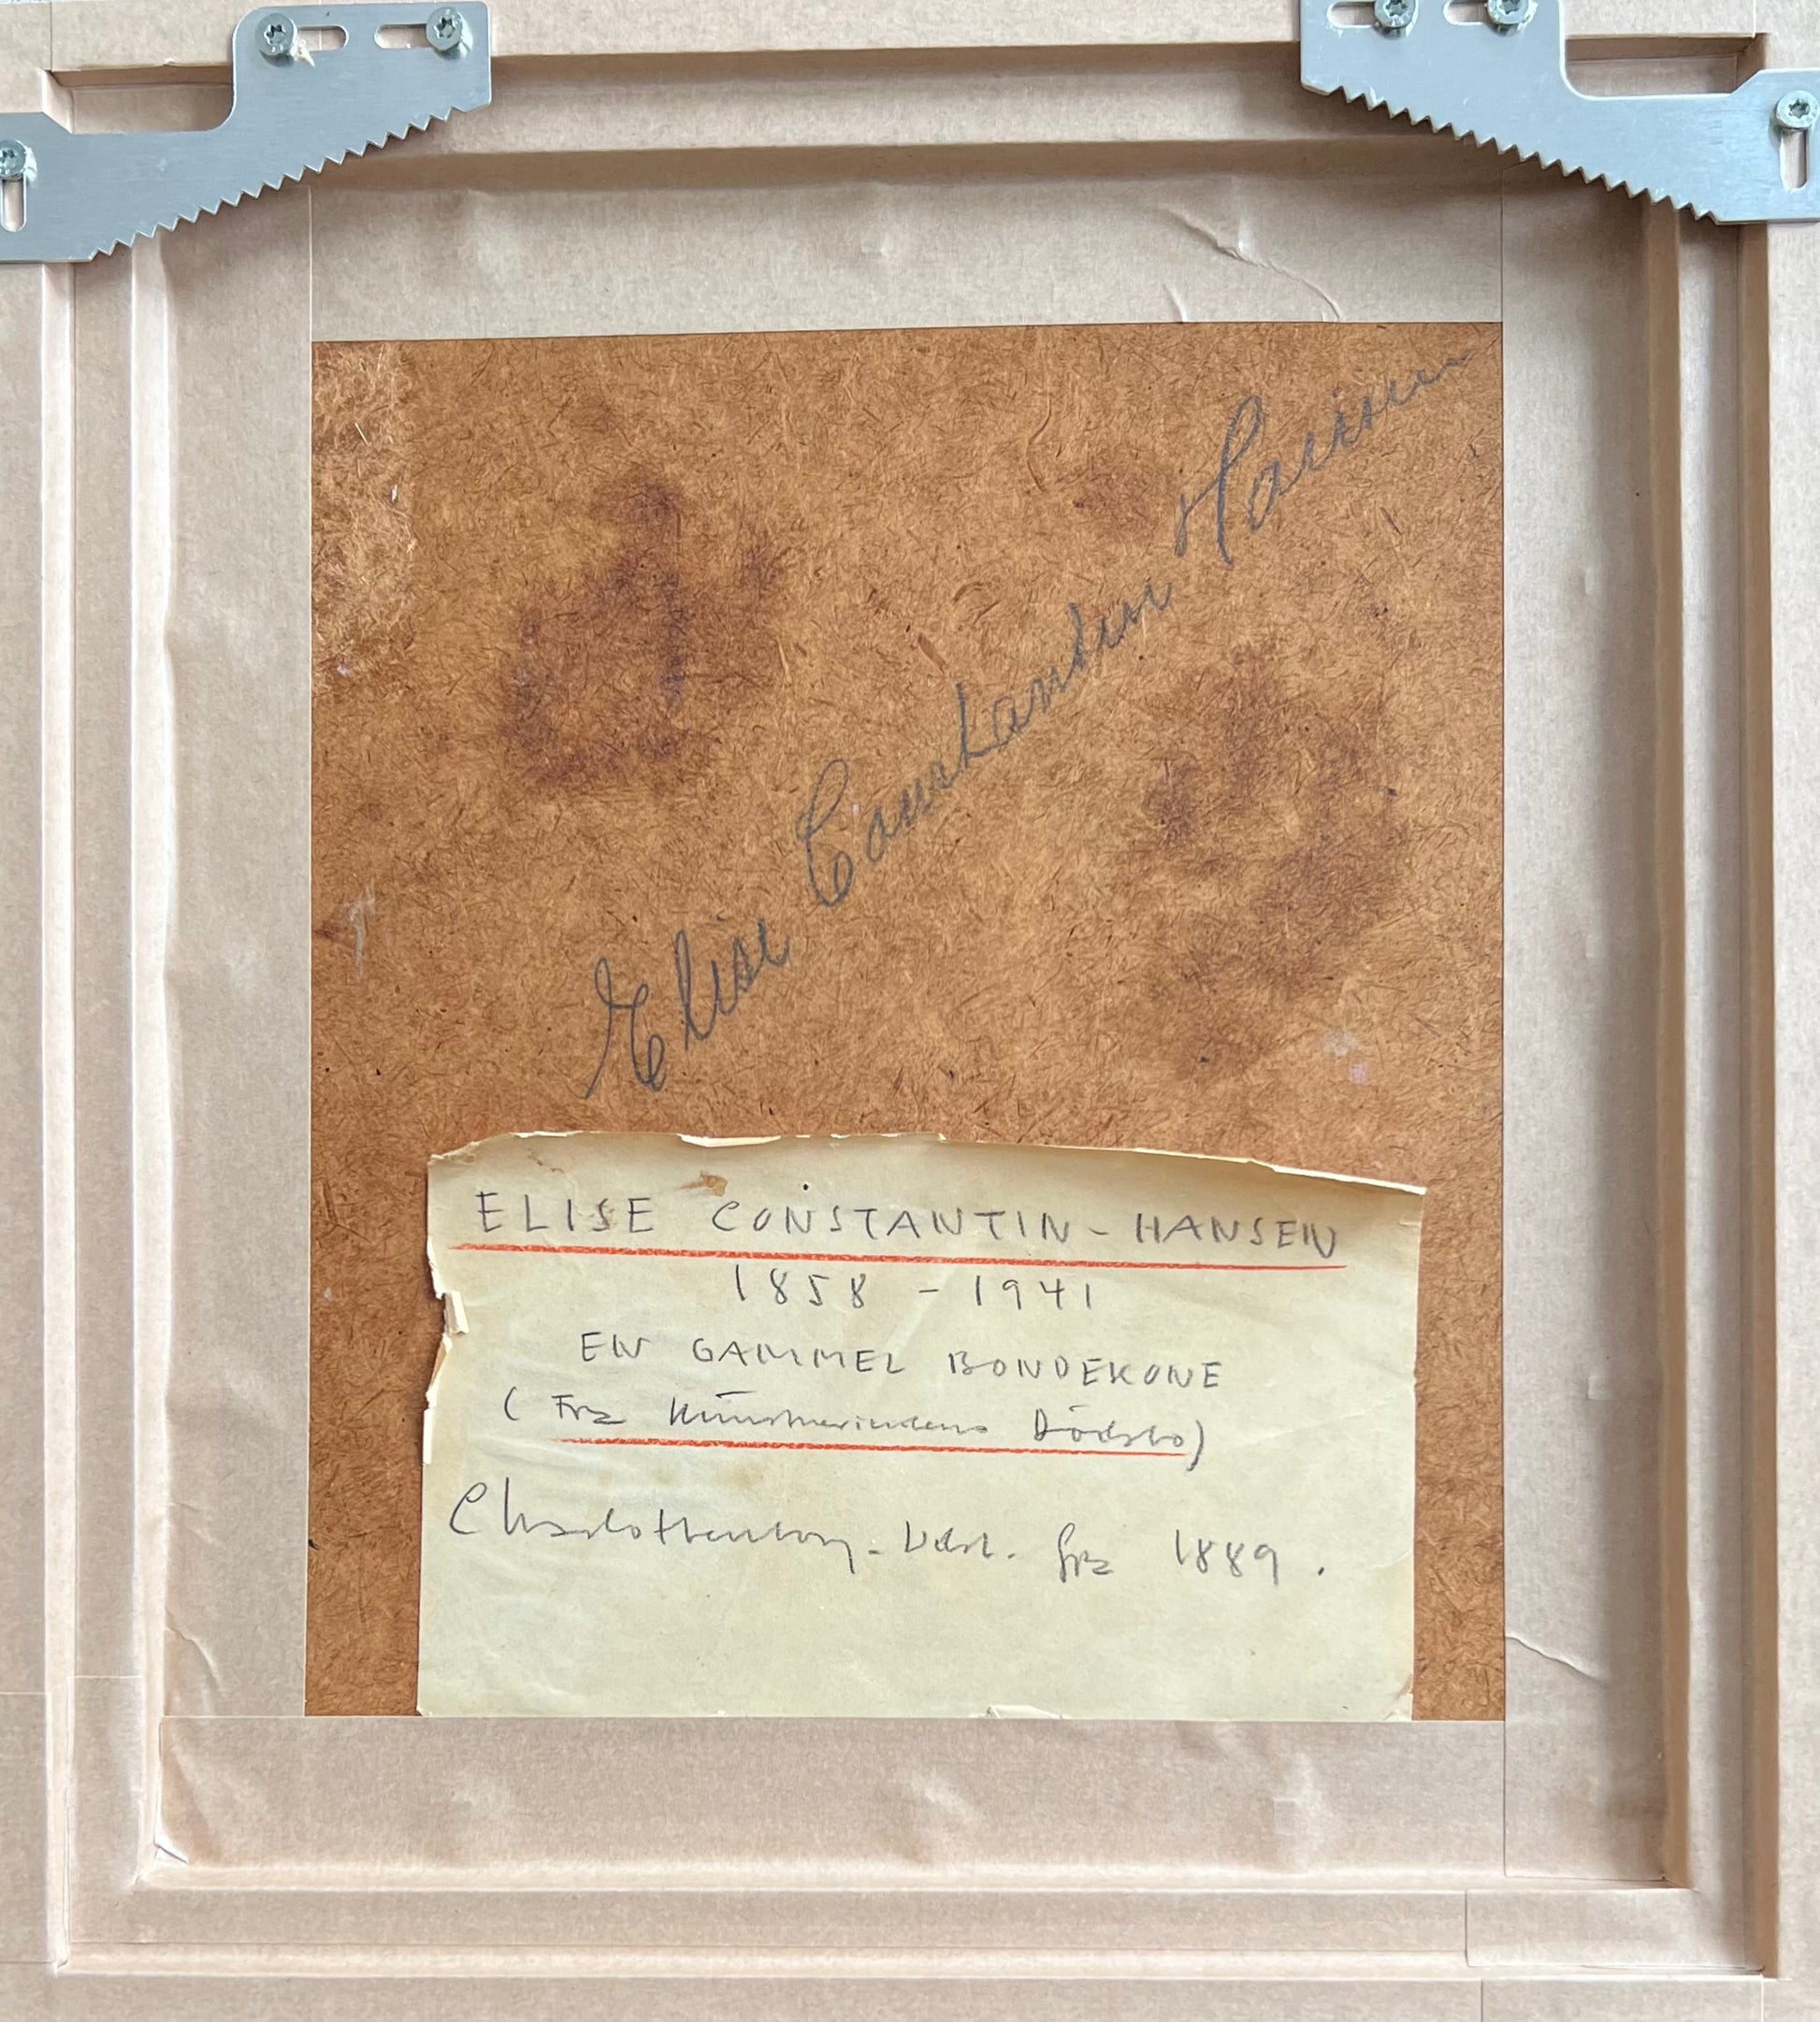 Elise Constantin Hansen
ELISE CONSTANTIN-HANSEN
1858 - 1941
EN GAMMEL BONDEKONE
(Fra Kunstnerindens Dödsbo)
Charlottenborg-Udst. fra 1889.